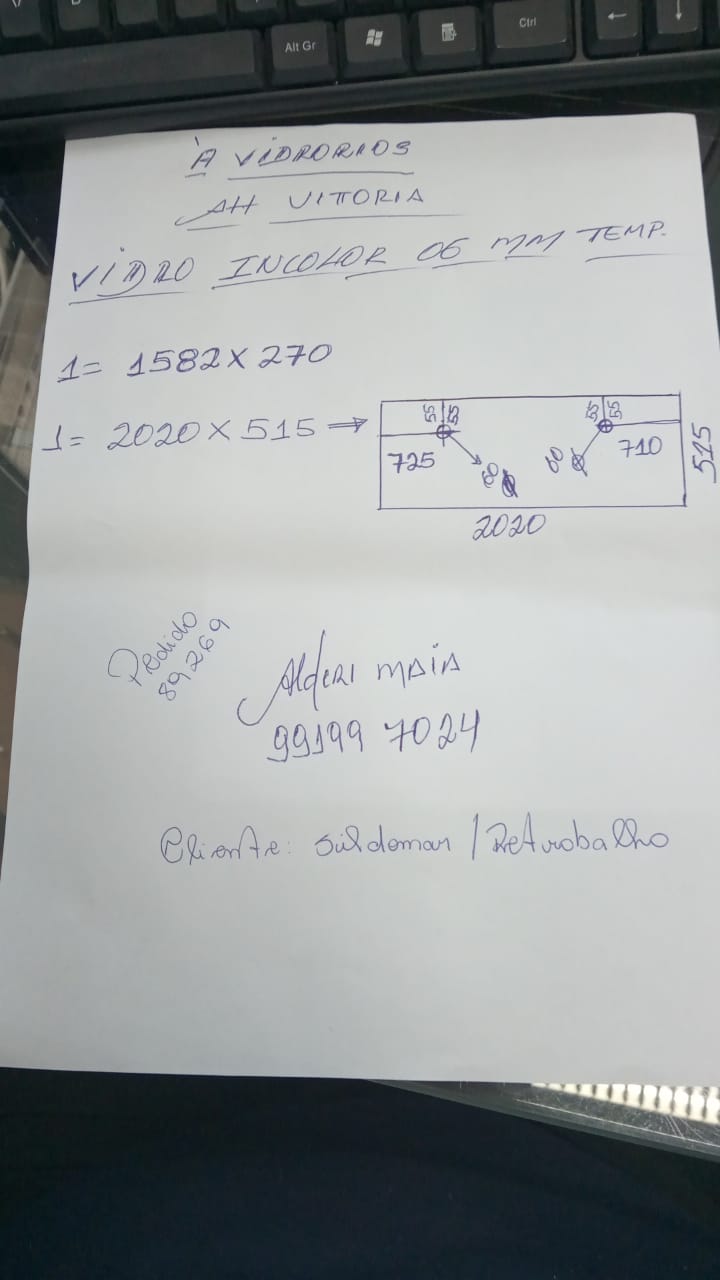 Alt Gr
Ctrl
À VIDRORIOS
AH VITORIA
VIDRO INCOLOR 06 MM TEMP.
1= 1582 X 270
1= 2020 X 515 →
55 55
55 55
725
60
60
710
515
2020
Pedido
89269
Alderi MAIA
99199 7024
Cliente: Suldemar / Retrabalho